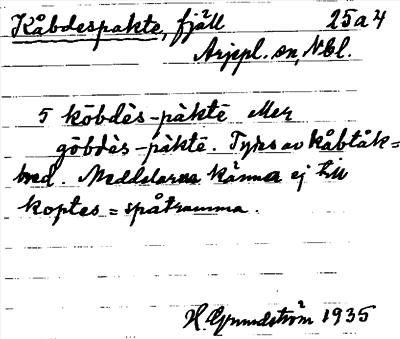 Kåbdespakte, fjäll 25a4
Arjepl. sn, Nbl.
5 kōbdès-pàktē eller
gōbdès-pàktē. Tydes av kåbtåk=
bred. Meddelarna känna ej till
koptes = spåtrumma.
H. Grundström 1935